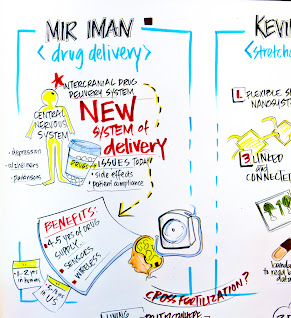 MIR IMAN
<drug delivery>
INTERCRANIAL DRUG
DELIVERY SYSTEM
NEW
SYSTEM of
delivery
CENTRAL
NERVOUS
SYSTEM
• depression
• alzheimers
• parkinsons
DRUGS
ISSUES TODAY
• side effects
• patient compliance
BENEFITS:
• 4-5 yrs of DRUG
SUPPLY
• SENSORS
• WIRELESS
in humans
in US
CROSS FERTILIZATION?
LIVING
KEVIN
<stretch
1 FLEXIBLE S
NANOSYST
3 LINKED
and
CONNECTE
to read
data